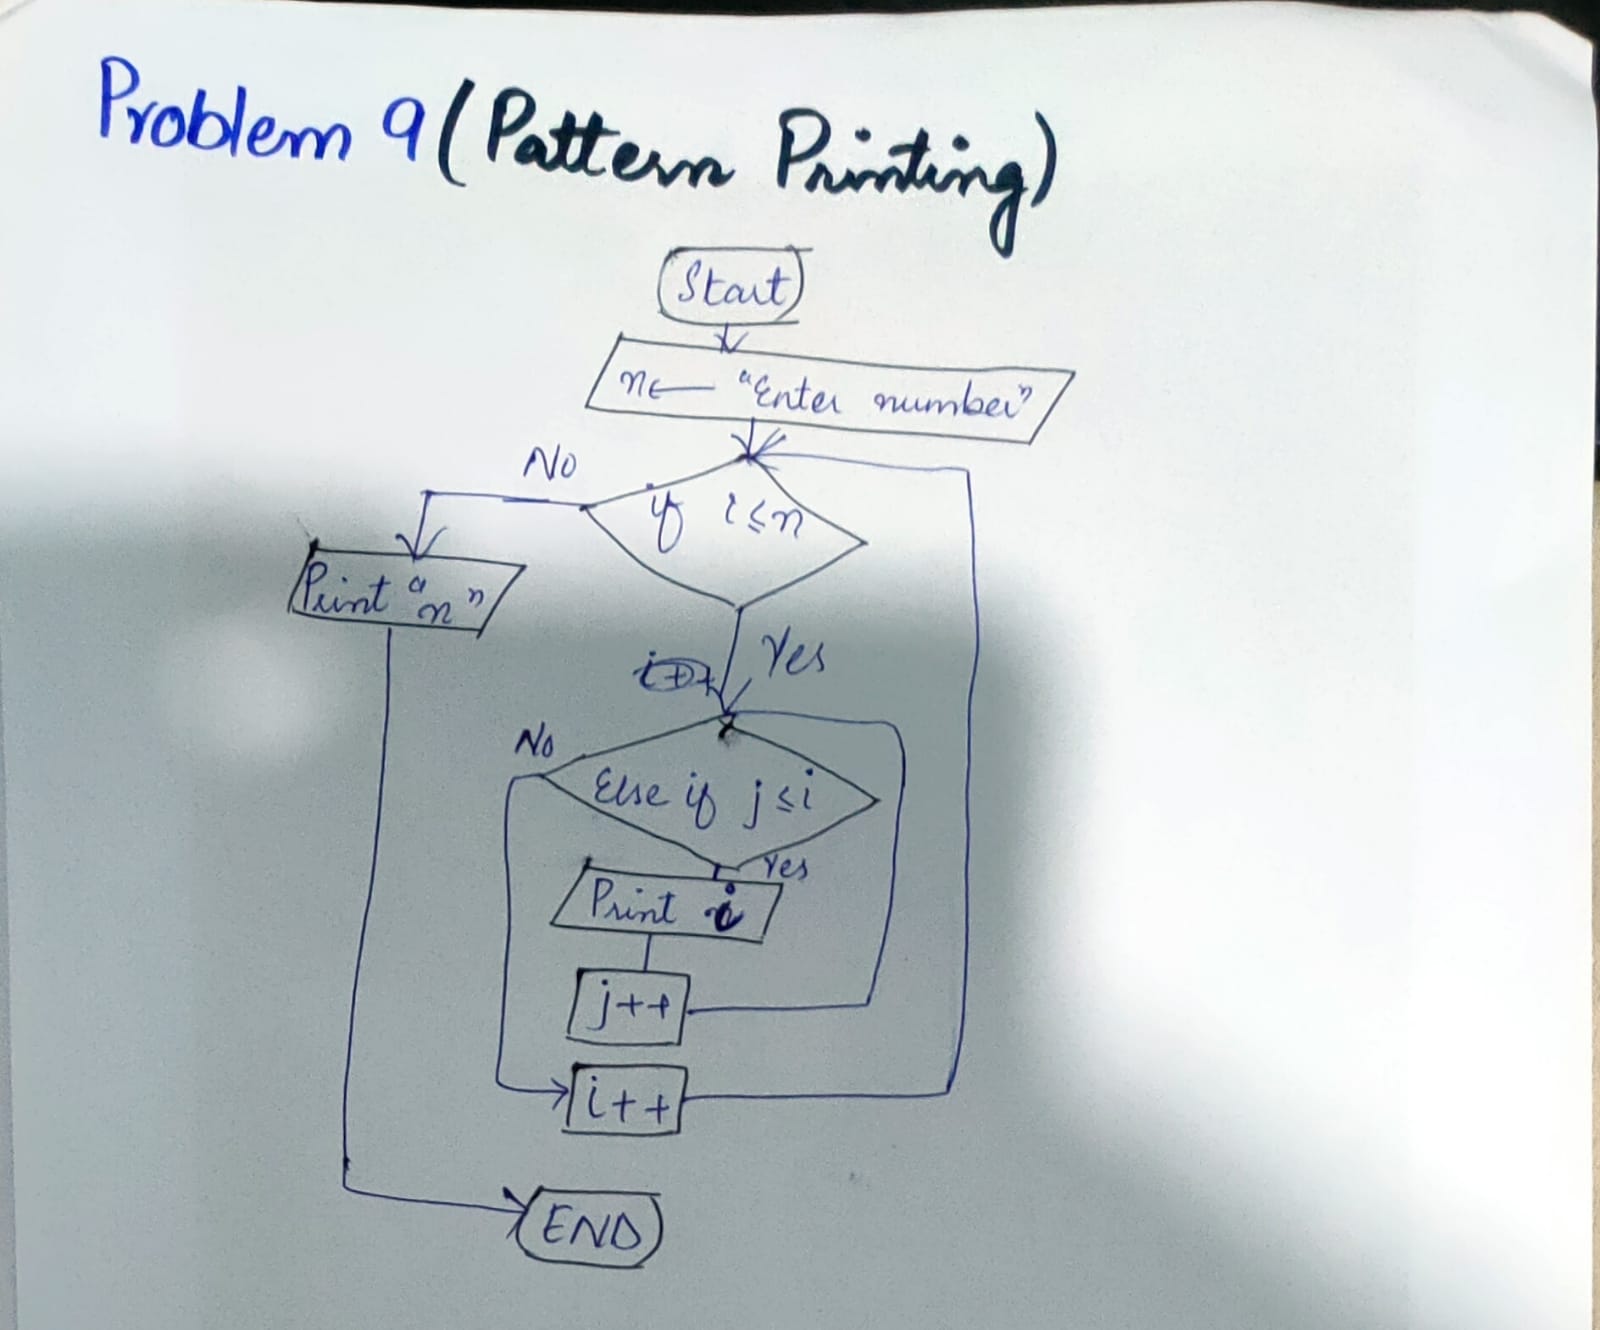 Problem 9 (Pattern Printing)
Start
n ← "Enter number"
No
if i ≤ n
Print "n"
Yes
No
Else if j ≤ i
Yes
Print i
j++
i++
END